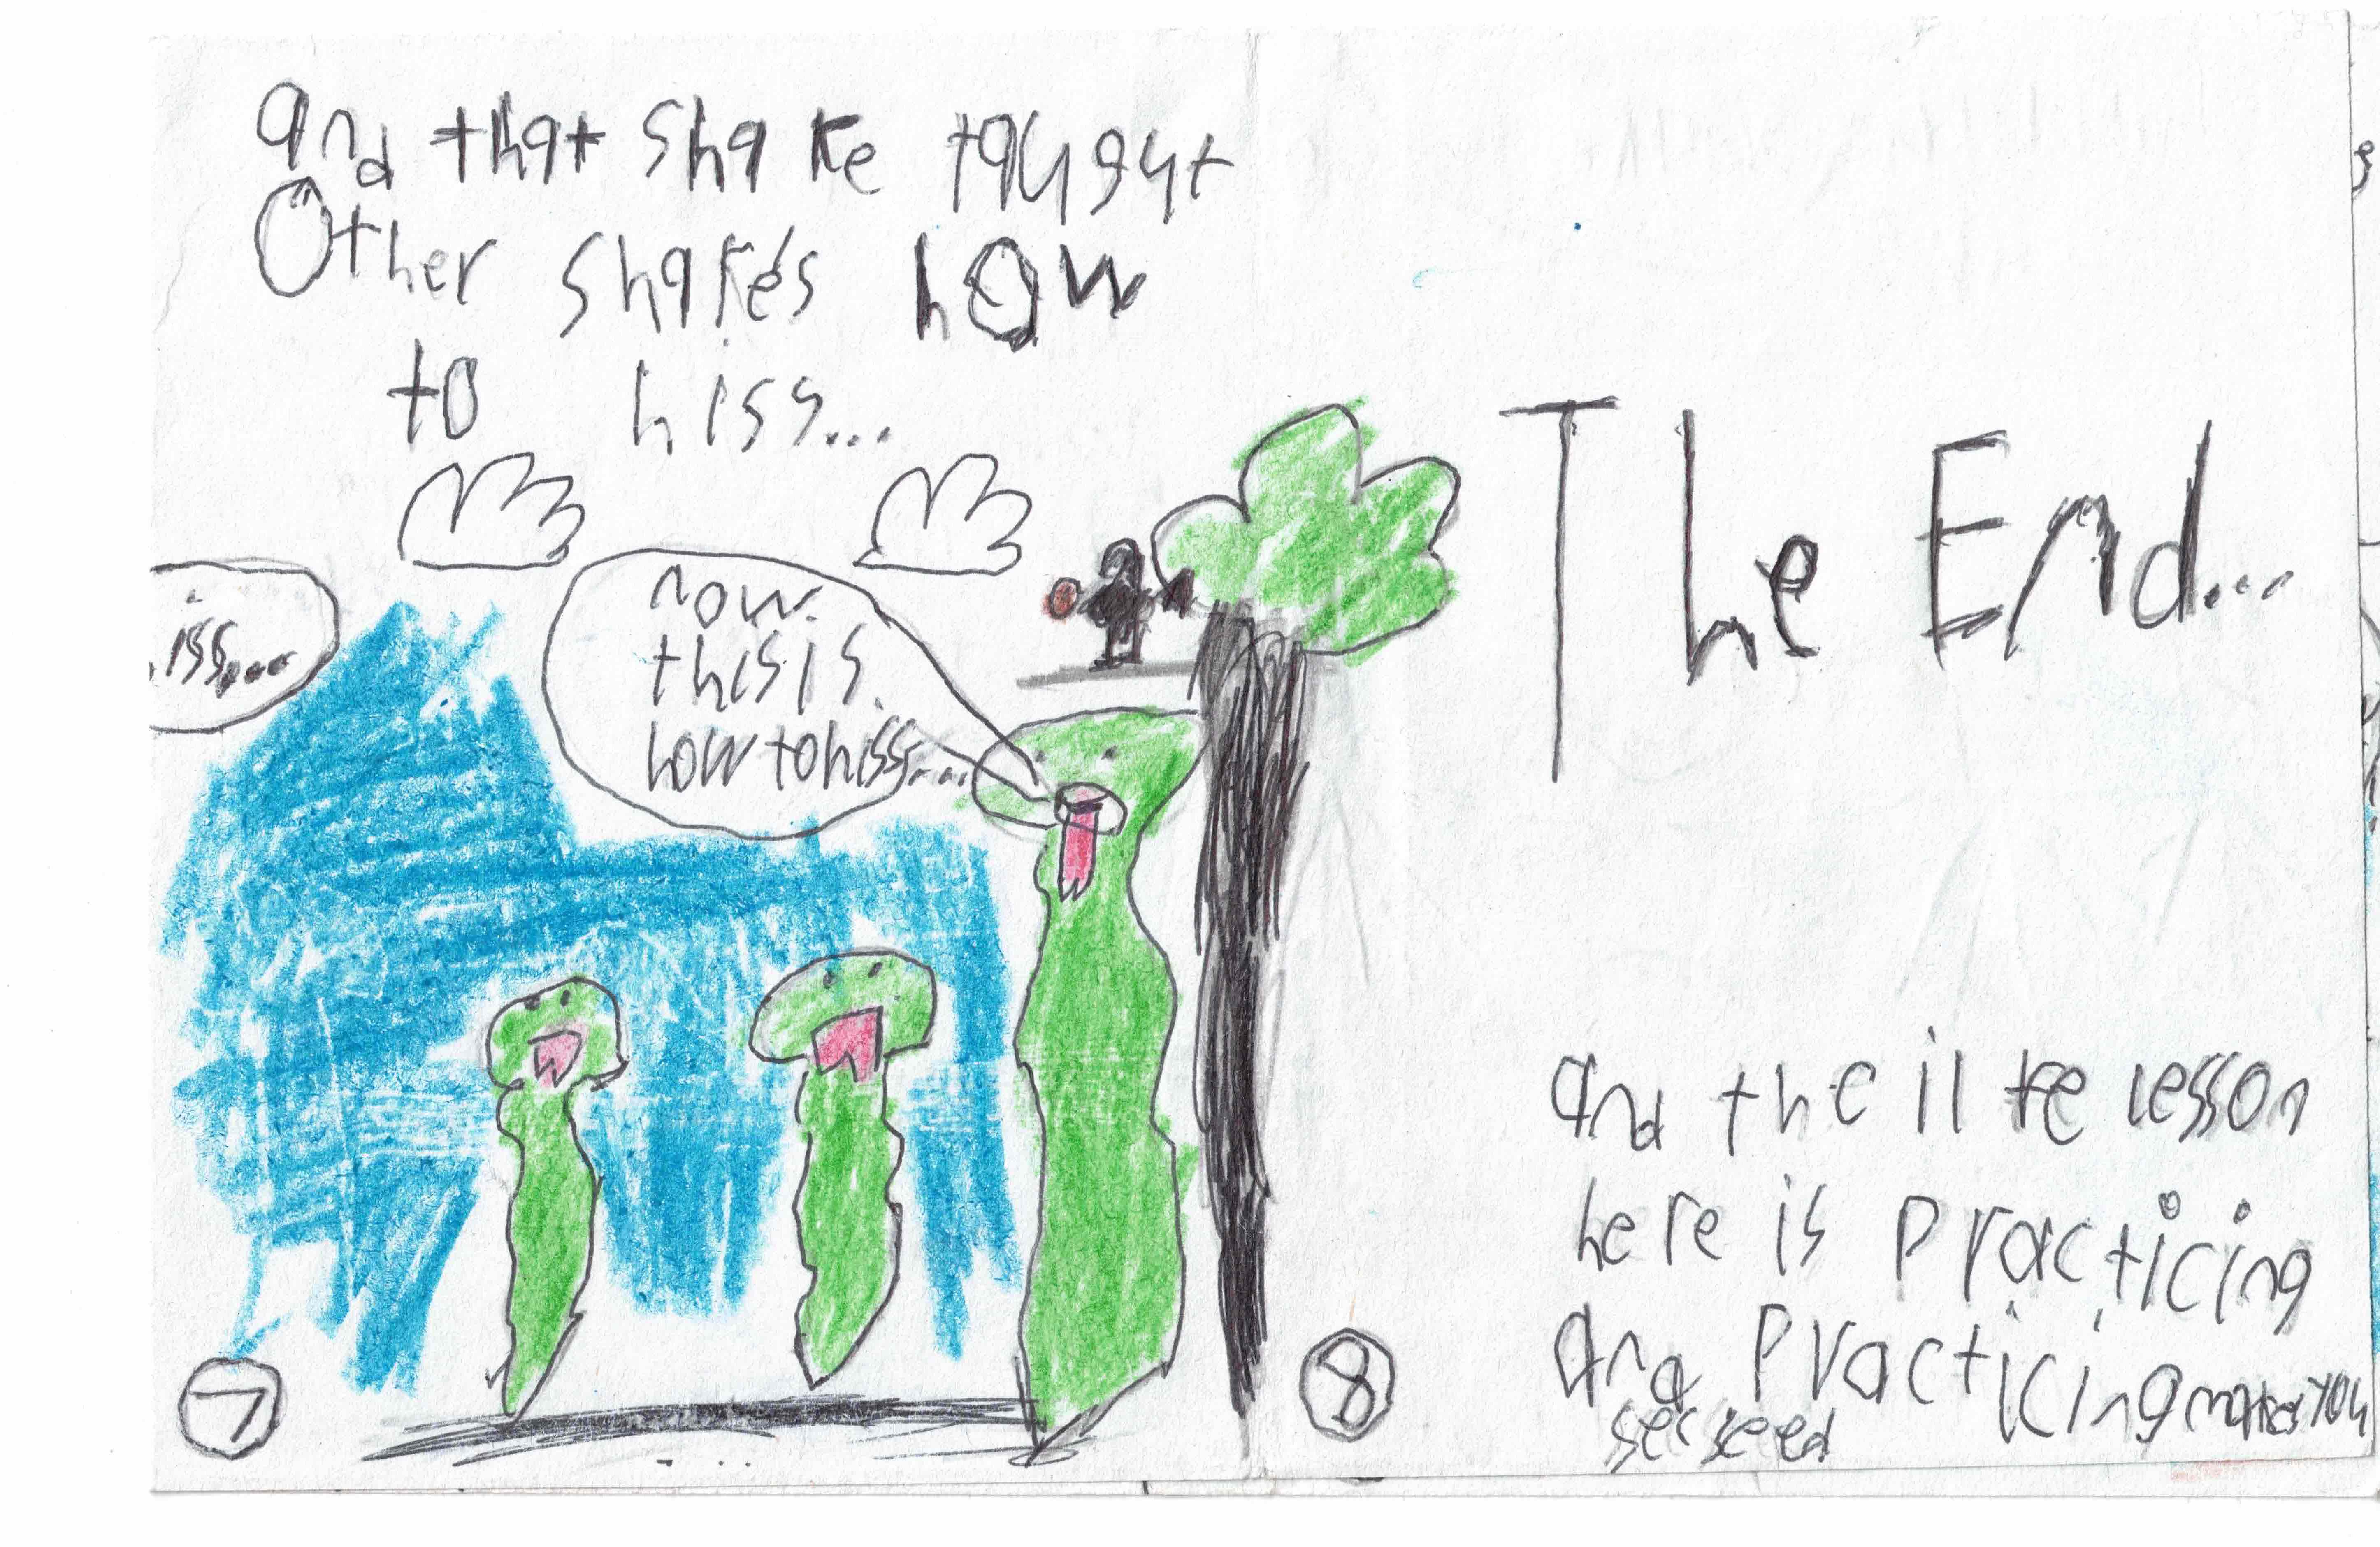 and that snake taugut
Other snakes how
to hiss...
iss...
now
this is
how to hiss...
7
The End...
and the ilte lesson
here is Practicing
and Practicing makes you
secseed
8